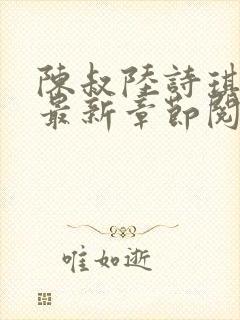 陳叔陸詩琪
最新章節閱
唯如逝